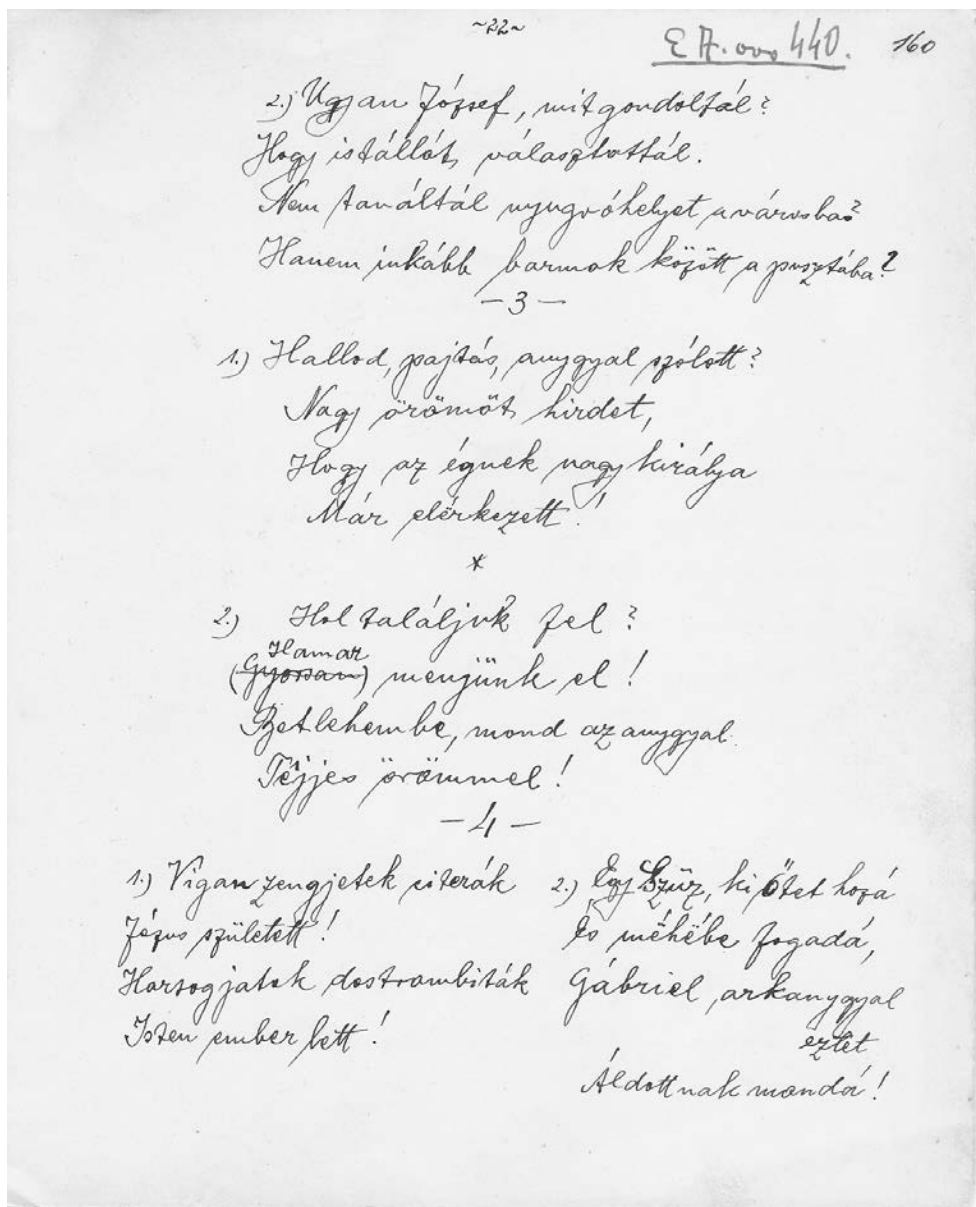 ~22~
E A. 440. 160
2.) Ugyan József, mit gondoltál?
Hogy istállót, választottál.
Nem tanáltál nyugvóhelyet a városba?
Hanem inkább barmok között a pusztába?
-3-
1.) Hallod, pajtás, anygyal szólott?
Nagy örömöt, hirdet,
Hogy az égnek nagy királya
Már elérkezett!
*
2.) Hol találjuk fel?
Hamar
(Gyorsan) menjünk el!
Betlehembe, mond az anygyal
Tejjes örömmel!
-4-
1.) Vígan zengjetek citerák
Jézus született!
Harsogjatok dostrombiták
Isten ember lett!
2.) Egy Szűz, ki Őtet hozá
És méhébe fogadá,
Gábriel, arkanygyal
eztet
Áldottnak mondá!